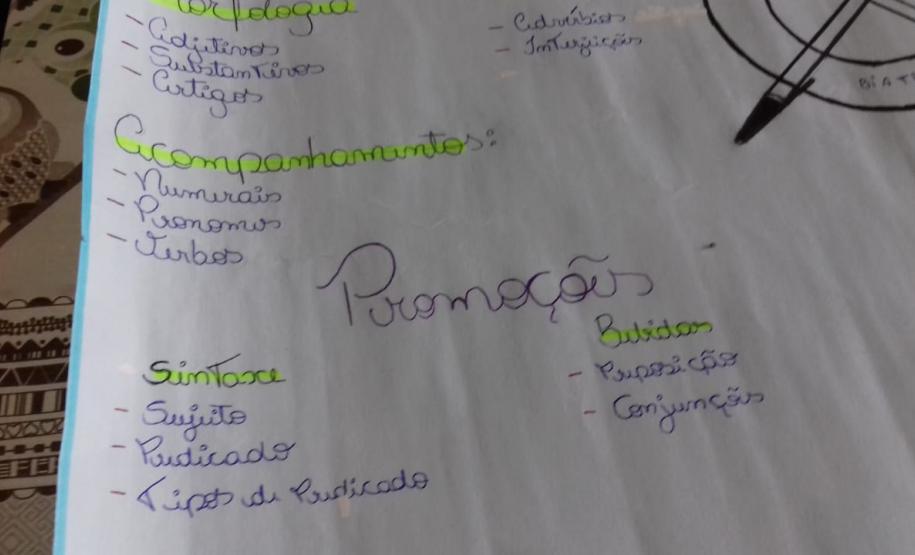 Morfologia
- Adjetivos
- Substantivos
- Artigos
- Advérbios
- Interjeição
Acompanhamentos:
- Numerais
- Pronomes
- Verbos
Promoções
Sintaxe
- Sujeito
- Predicado
- Tipos de Predicado
Bebidas
- Preposição
- Conjunções